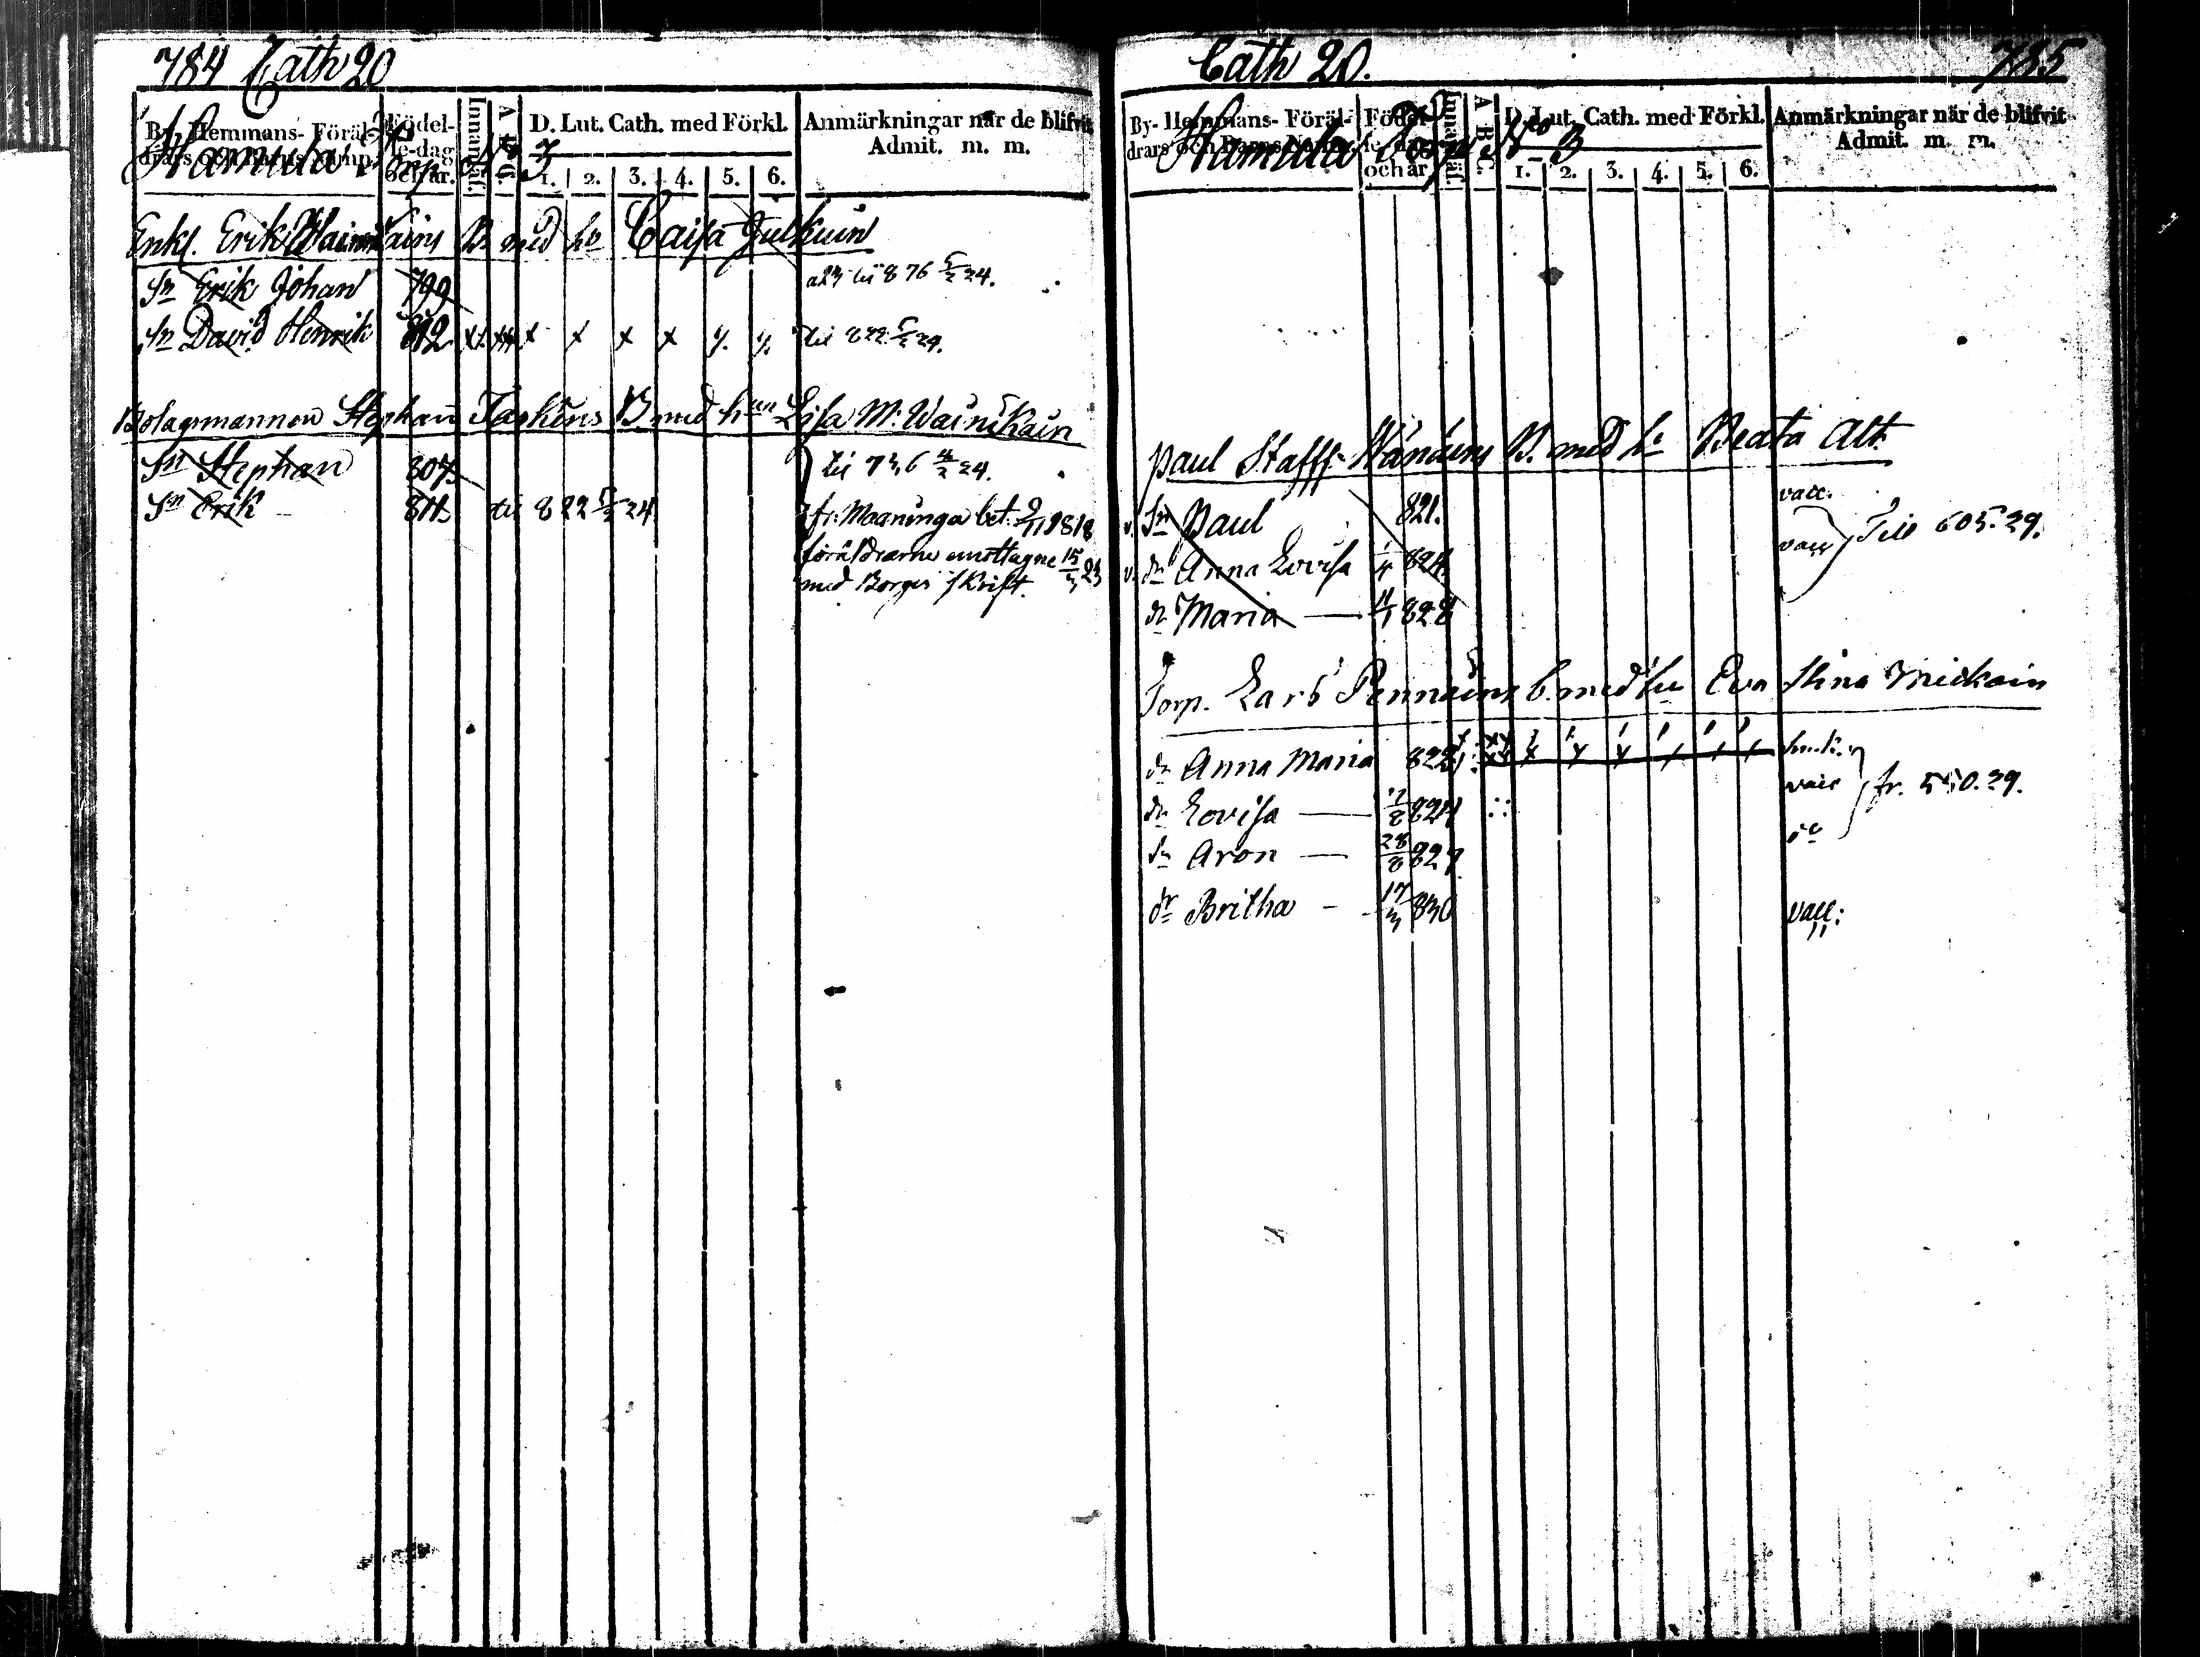 784 Cath 20
By- Hemmans- Föräl-
drars och Barns Namn.
Hamula Torp No 3
Födel-
se-dag
och år.
Innanläs.
A B C.
D. Lut. Cath. med Förkl.
1. 2. 3. 4. 5. 6.
Anmärkningar när de blifvit
Admit. m. m.
Enkl. Erik Wainikains B med ho Caisa Julkuin
Sn Erik Johan 799 til 876 5/2 24.
Sn David Henrik 812 x x x x x x y. y. til 822 5/2 29.
Bolagsmannen Stephan Taskins B med hun Lisa M. Wainikain
Sn Stephan 807. til 736 4/2 24.
Sn Erik 811. til 822 5/2 24
fr. Maaninga bet. 9/11 1818
föräldrarne emottagne 15/3 23
med Borges skrift.
Cath 20. 785
By- Hemmans- Föräl-
drars och Barns Namn.
Hamula Torp No 3
Födel-
se-dag
och år.
Innanläs.
A B C.
D. Lut. Cath. med Förkl.
1. 2. 3. 4. 5. 6.
Anmärkningar när de blifvit
Admit. m. m.
Paul Staffs. Wänäins B. med ho Beata Alt.
v. Sn Paul 821. vacc.
v. dr Anna Lovisa 1/4 824. vacc Till 605. 29.
dr Maria — 11/1 828
Torp. Lars Pennains b. med hu Eva Stina Mickain
dr Anna Maria 822
dr Lovisa — 17/8 824 vacc fr. 550. 29.
Sn Aron — 28/8 827. do
dr Britha - 17/3 830 vacc: